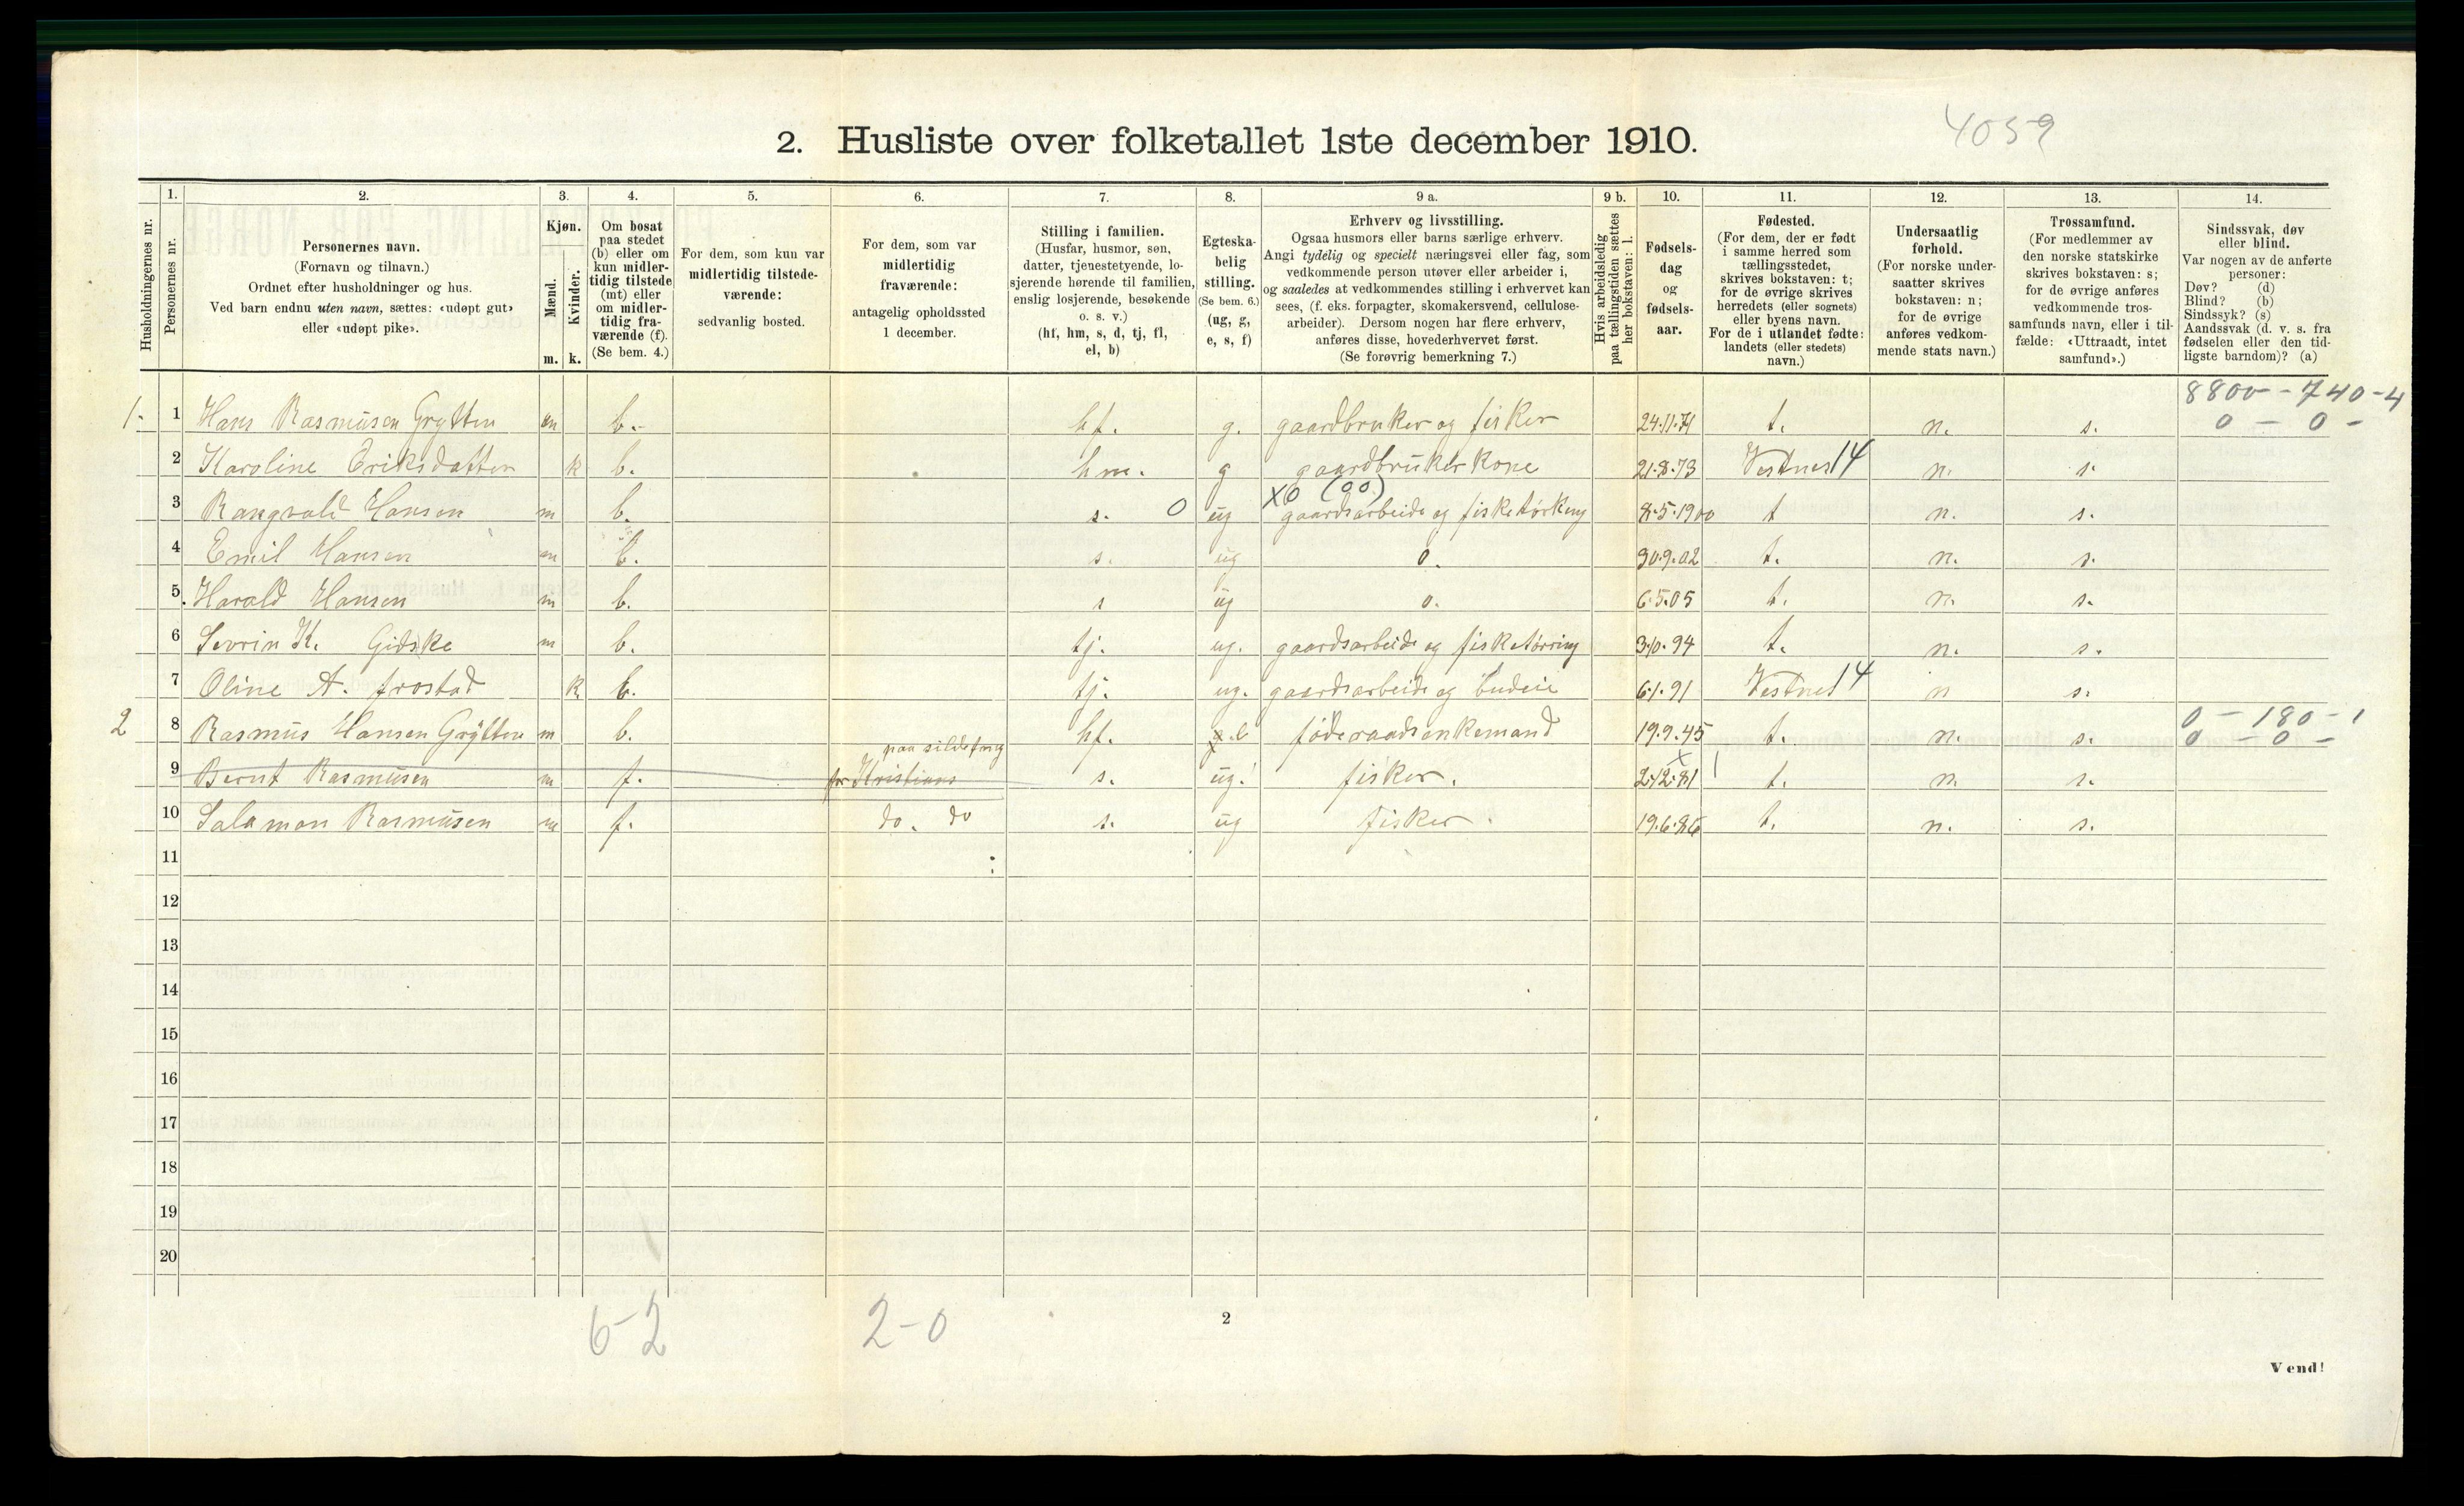 4059
2. Husliste over folketallet 1ste december 1910.
Husholdningernes nr.
1.
Personernes nr.
2.
Personernes navn.
(Fornavn og tilnavn.)
Ordnet efter husholdninger og hus.
Ved barn endnu uten navn, sættes: «udøpt gut»
eller «udøpt pike».
3.
Kjøn.
Mænd.
Kvinder.
m. k.
4.
Om bosat
paa stedet
(b) eller om
kun midler-
tidig tilstede
(mt) eller
om midler-
tidig fra-
værende (f).
(Se bem. 4.)
5.
For dem, som kun var
midlertidig tilstede-
værende:
sedvanlig bosted.
6.
For dem, som var
midlertidig
fraværende:
antagelig opholdssted
1 december.
7.
Stilling i familien.
(Husfar, husmor, søn,
datter, tjenestetyende, lo-
sjerende hørende til familien,
enslig losjerende, besøkende
o. s. v.)
(hf, hm, s, d, tj, fl,
el, b)
8.
Egteska-
belig
stilling.
(Se bem. 6.)
(ug, g,
e, s, f)
9 a.
Erhverv og livsstilling.
Ogsaa husmors eller barns særlige erhverv.
Angi tydelig og specielt næringsvei eller fag, som
vedkommende person utøver eller arbeider i,
og saaledes at vedkommendes stilling i erhvervet kan
sees, (f. eks. forpagter, skomakersvend, cellulose-
arbeider). Dersom nogen har flere erhverv,
anføres disse, hovederhvervet først.
(Se forøvrig bemerkning 7.)
9 b.
Hvis arbeidsledig
paa tællingstiden sættes
her bokstaven: l.
10.
Fødsels-
dag
og
fødsels-
aar.
11.
Fødested.
(For dem, der er født
i samme herred som
tællingsstedet,
skrives bokstaven: t;
for de øvrige skrives
herredets (eller sognets)
eller byens navn.
For de i utlandet fødte:
landets (eller stedets)
navn.)
12.
Undersaatlig
forhold.
(For norske under-
saatter skrives
bokstaven: n;
for de øvrige
anføres vedkom-
mende stats navn.)
13.
Trossamfund.
(For medlemmer av
den norske statskirke
skrives bokstaven: s;
for de øvrige anføres
vedkommende tros-
samfunds navn, eller i til-
fælde: «Uttraadt, intet
samfund».)
14.
Sindssvak, døv
eller blind.
Var nogen av de anførte
personer:
Døv? (d)
Blind? (b)
Sindssyk? (s)
Aandssvak (d. v. s. fra
fødselen eller den tid-
ligste barndom)? (a)
8800 - 740 - 4
1. 1 Hans Rasmusen Grytten m b. hf. g. gaardbruker og fisker 24.11.71 t. n. s. 0 - 0 -
2 Karoline Eriksdatter k b. hm. g gaardbrukerkone 21.8.73 Vestnes 14 n. s.
X0 (00)
3 Rangvald Hansen m b. s. 0 ug gaardsarbeide og fisketørking 8.5.1900 t n. s.
4 Emil Hansen m b. s. ug 0. 30.9.02 t. n. s.
5 Harald Hansen m b. s ug 0. 6.5.05 t. n. s.
6 Sevrin K. Gidske m b. tj. ug. gaardsarbeide og fisketørring 3.10.94 t. n. s.
7 Oline A. frostad k b. tj. ug. gaardsarbeide og budeie 6.1.91 Vestnes 14 n s.
0 - 180 - 1
2 8 Rasmus Hansen Grytten m b. hf. e føderaadsenkemand 19.9.45 t. n. s. 0 - 0 -
paa sildefring
9 Bernt Rasmusen m f. for Kristians s. ug. fisker. 2.12.81 t. n. s.
10 Salamon Rasmusen m f. do. do s. ug fisker. 19.6.86 t. n. s.
11
12
13
14
15
16
17
18
19
20
6-2 2-0
2
Vend!